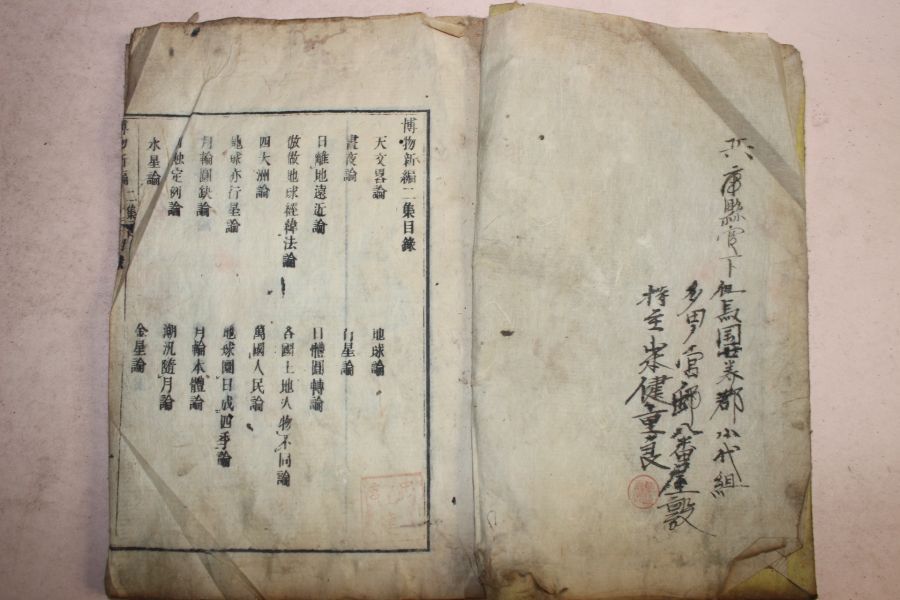 兵庫縣管下但馬国
小代組
多田
番屋敷
持主
健重良
博物新編二集目錄
天文畧論
地球論
晝夜論
行星論
日離地遠近論
日體圓轉論
倣做地球經緯法論
各國土地人物不同論
四大洲論
萬國人民論
地球亦行星論
地球圜日成四季論
月輪圓缺論
月輪本體論
定例論
潮汛隨月論
水星論
金星論
博物新編 二集